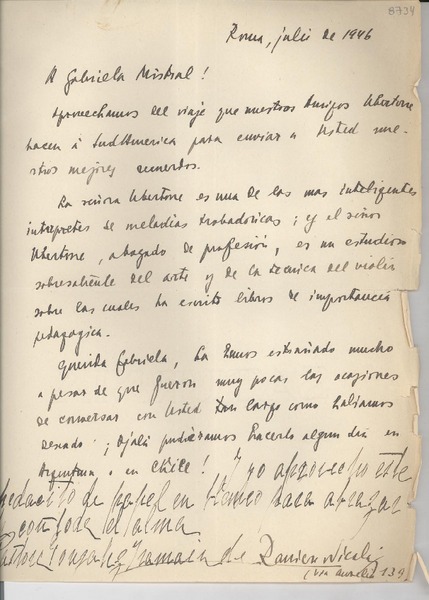 8734
Roma, julio de 1946
A Gabriela Mistral!
Aprovechamos del viaje que nuestros amigos Ubertone
hacen á SudAmerica para enviar a Usted nue-
stros mejores recuerdos.
La señora Ubertone es una de las mas inteligentes
intérpretes de melodias trobadoricas; y el señor
Ubertone, abogado de profesión, es un estudioso
sobresaliente del arte y de la tecnica del violin
sobre las cuales ha escrito libros de importancia
pedagogica.
Querida Gabriela, La hemos estrañado mucho
a pesar de que fueron muy pocas las ocasiones
de conversar con Usted tan largo como habiamos
deseado; ¡Ojalá pudiéramos hacerlo algun dia en
Argentina o en Chile! Y yo aprovecho este
pedacito de papel en blanco para abrazar
con toda el alma
de
(via Aurelia 139